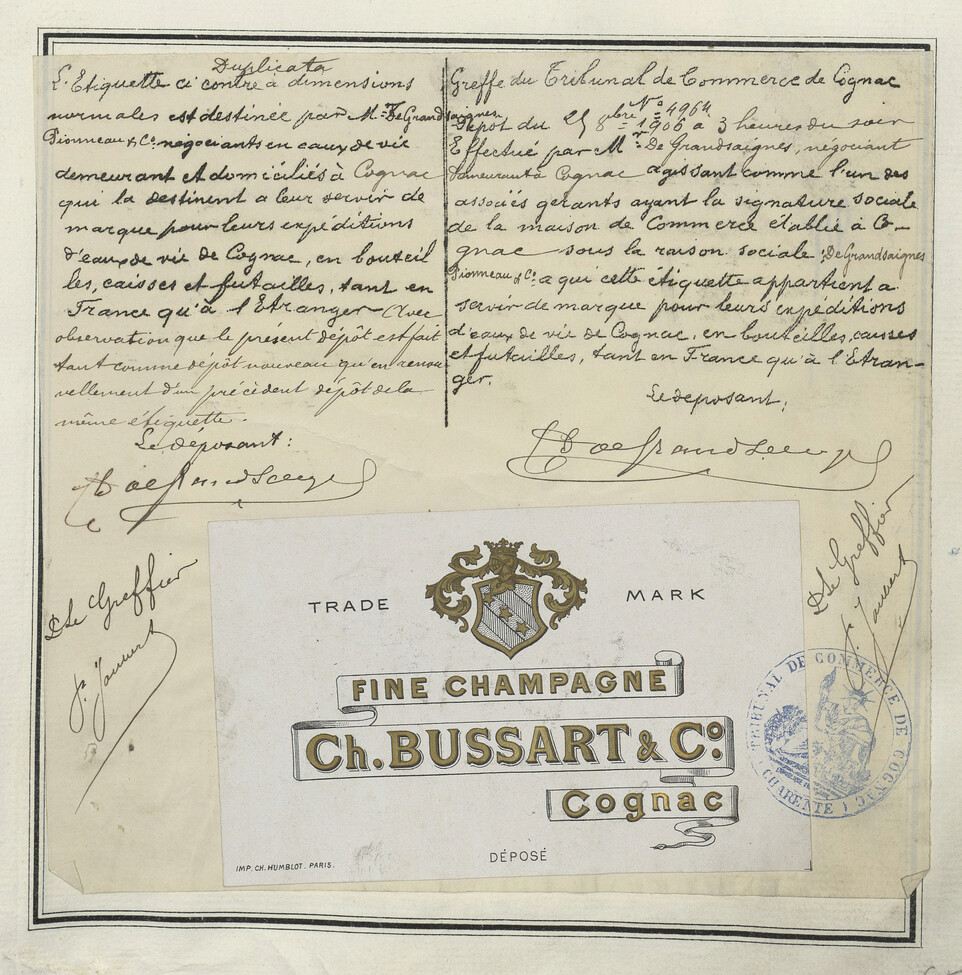 Duplicata
L'Etiquette ci contre à dimensions
normales est destinée par Mr De Grandsaignes
Pionneau & Co. négociants en eaux de vie
demeurant et domiciliés à Cognac
qui la destinent a leur servir de
marque pour leurs expéditions
d'eaux de vie de Cognac, en bouteil
les, caisses et futailles, tant en
France qu'à l'Etranger Avec
observation que le présent dépôt est fait
tant comme dépôt nouveau qu'en renou
vellement d'un précédent dépôt de la
même étiquette.
Le déposant:
Greffe du Tribunal de Commerce de Cognac
No 4964
Dépot du 25 8bre 1906 a 3 heures du soir
Effectué par Mr De Grandsaignes, négociant
demeurant à Cognac agissant comme l'un des
associés gérants ayant la signature sociale
de la maison de Commerce établie à Co-
gnac sous la raison sociale: De Grandsaignes
Pionneau & Co. a qui cette étiquette appartient a
servir de marque pour leurs expéditions
d'eaux de vie de Cognac, en bouteilles, caisses
et futailles, tant en France qu'à l'Etran-
ger.
Le déposant:
Le Greffier
Le Greffier
TRADE MARK
FINE CHAMPAGNE
Ch. BUSSART & Co.
Cognac
DÉPOSÉ
IMP. CH. HUMBLOT. PARIS.
TRIBUNAL DE COMMERCE DE COGNAC
CHARENTE